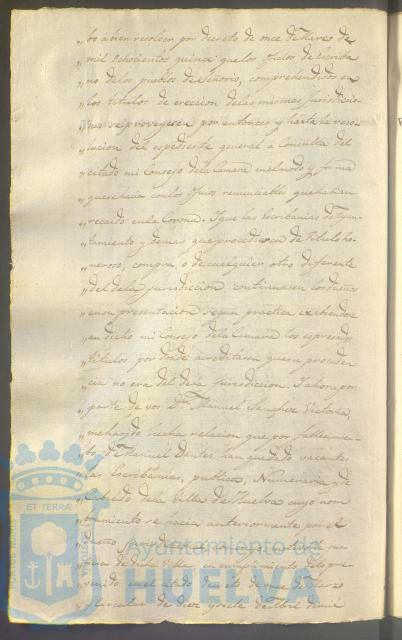 „ bo abien resolver por decreto de once de Marzo de
„ mil ochocientos quince que los oficios de Escriba
„ no de los pueblos de Señorio, comprehendidos en
„ los titulos de ereccion de las mismas Jurisdiccio
„ nes se proveyesen por entonces y hasta la reso
„ lucion del expediente general a consulta del
„ citado mi Consejo de la Camara en el modo y forma
„ que se hacia con los oficios renunciables que habian
„ recaido en la Corona. Y que las Escribanias de Ayun
„ tamiento y demas que procediesen de titulo ho
„ neroso, compra, o de cualquier otro diferente
„ del de la jurisdiccion continuasen los dueños
„ en su presentacion segun practica exhibiendo
„ en dicho mi Consejo de la Camara los expresados
„ titulos por donde acreditasen que su proceden
„ cia no era del de la jurisdiccion. Y ahora por
„ parte de vos Dn. Manuel Sanchez Victoria,
„ me ha sido hecha relacion que por fallecimien
„ to de Manuel han quedado vacantes
„ las Escribanias, publica, Numeraria y de
„ Cabildo de la Villa de Huelva cuyo nom
„ bramiento se hacia anteriormente por el
„ dueño jurisdiccional
„ de dicha Villa, en cumplimiento de lo pre
„ venido en el citado decreto de once de Marzo
„ y circular de diez y siete de Abril de mil
ET TERRÆ
Ayuntamiento de
HUELVA